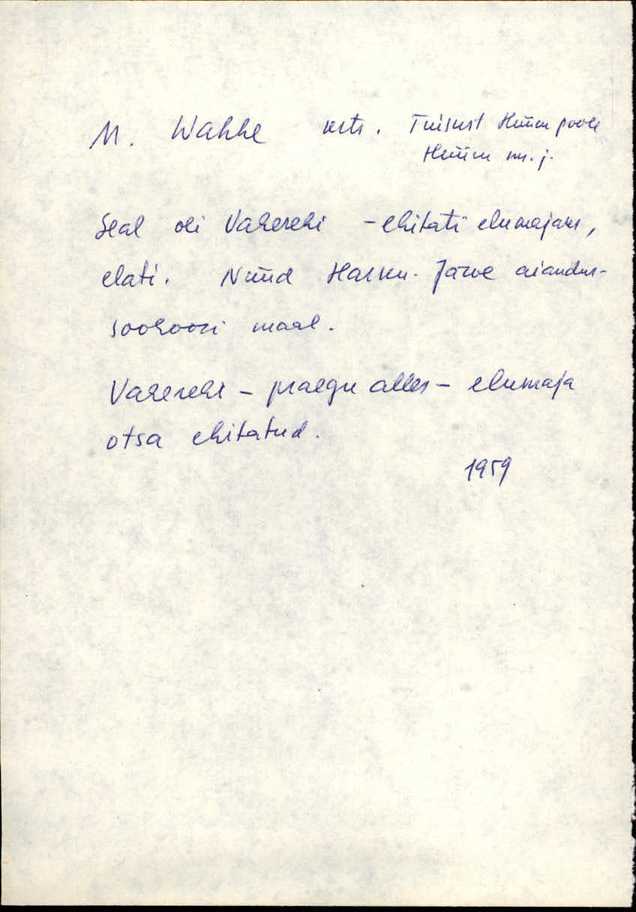 M. Wahhe krts. Tuisust Hüüru poole
Hüüru mm. j.
Seal oli Vaherehi - ehitati elumajaks,
elati. Nüüd Harku-Järve aiandus-
sovhoosi maal.
Vaherehi - praegu alles - elumaja
otsa ehitatud.
1959